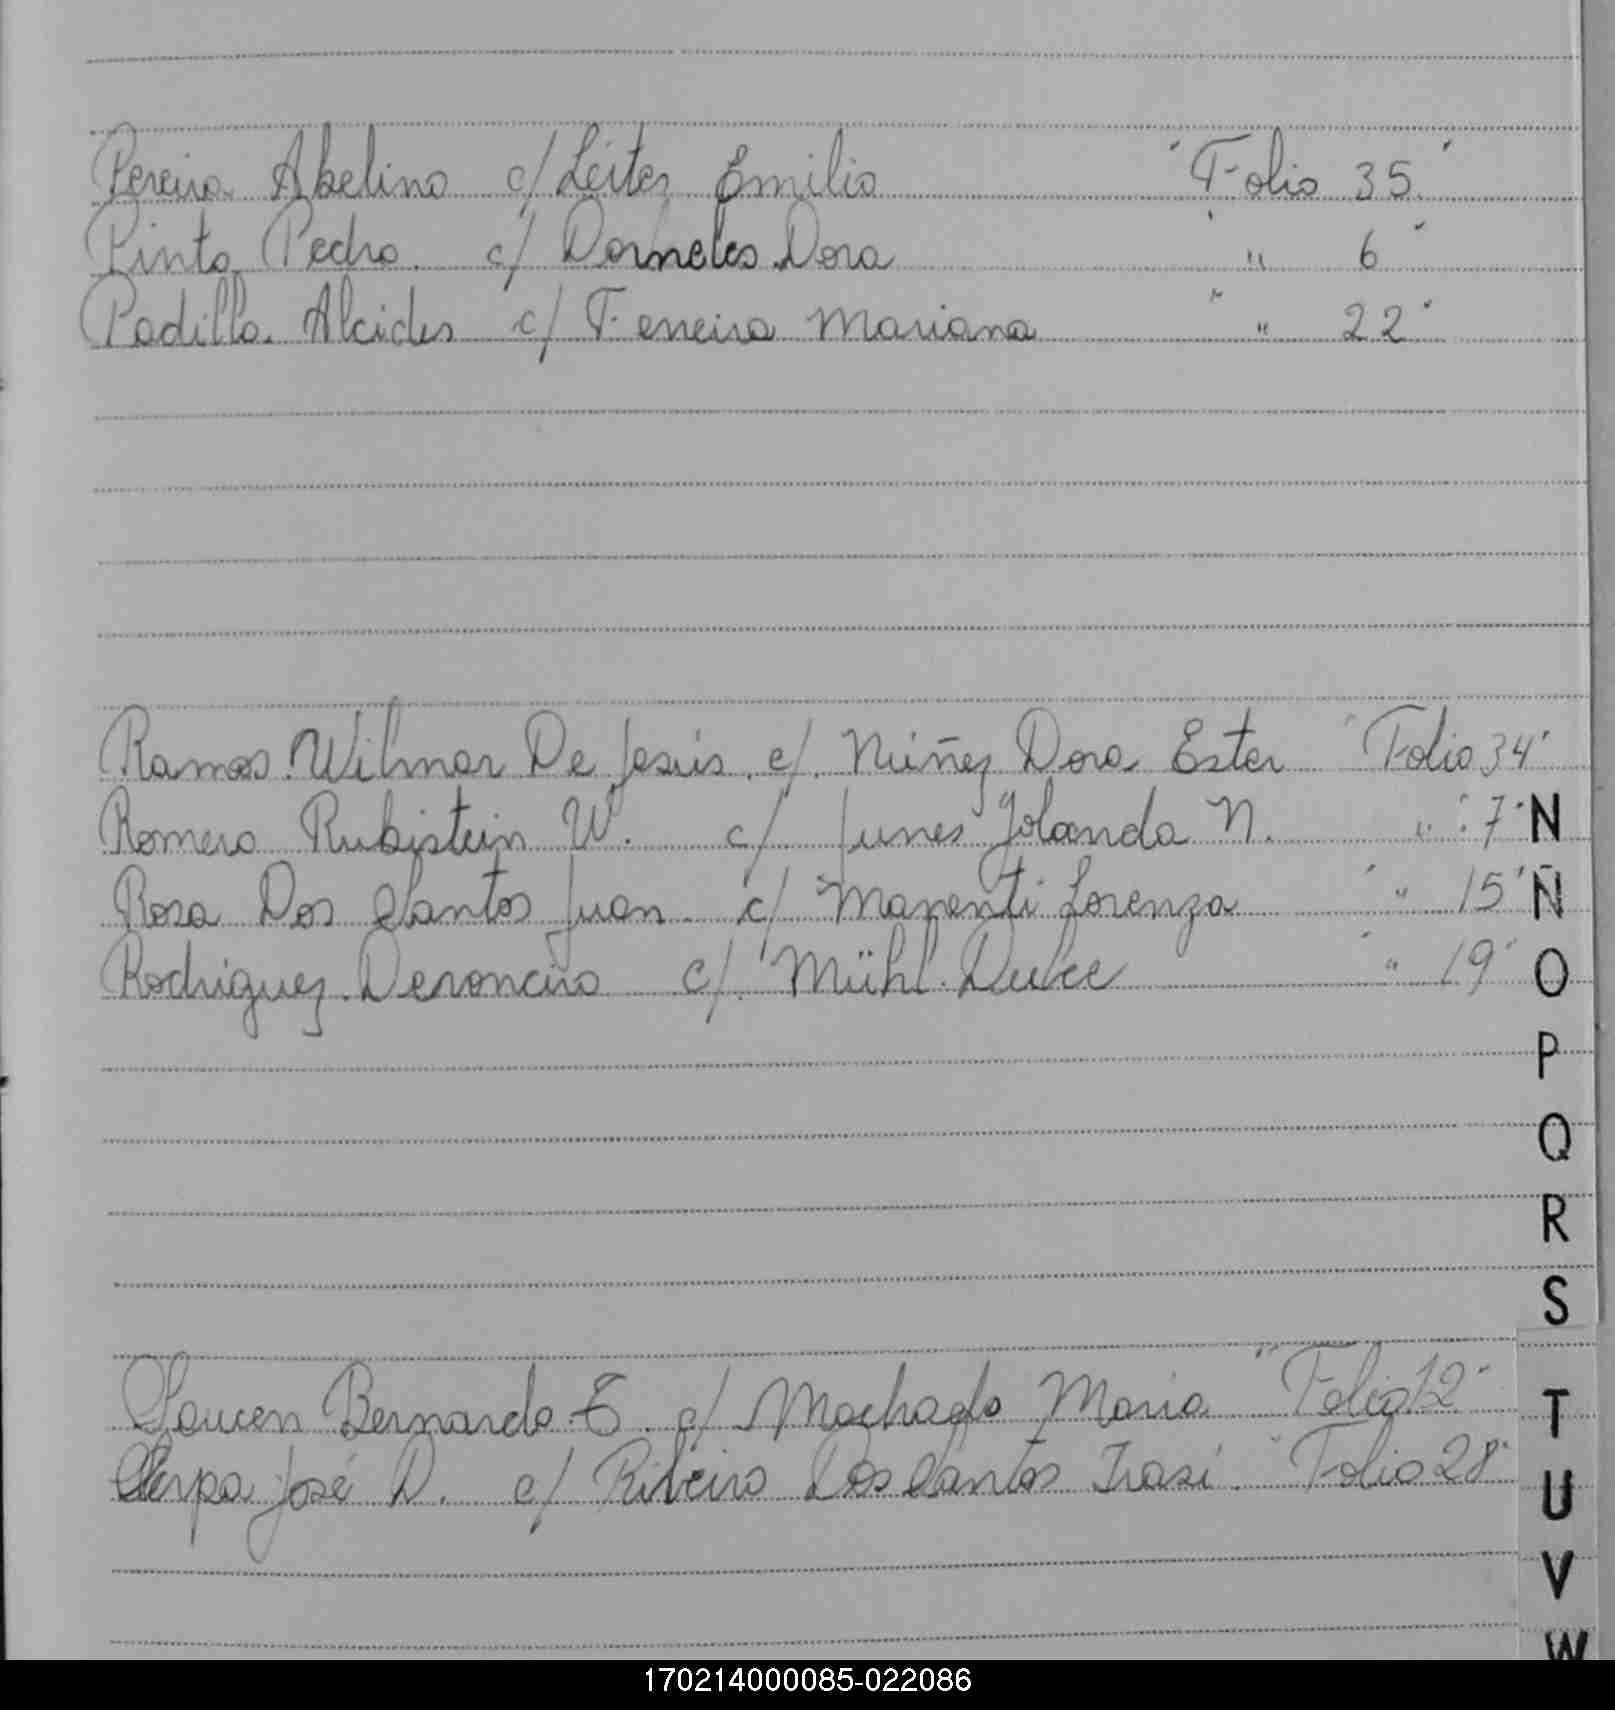 Pereira Abelino c/ Leites Emilia "Folio 35"
Pinto Pedro. c/ Dorneles Dora " " 6"
Padilla. Alcides c/ Ferreira Mariana " " 22"
Ramos. Wilmar De Jesús. c/. Núñez Dora Ester "Folio 34"
Romero Rubistein W. c/ Junes Yolanda N. " "7" N
Rosa Dos Santos Juan c/ Manenti Lorenza " " 15" Ñ
Rodriguez. Deroncino c/. Mühl. Dulce " " 19" O
P
Q
R
S
Saucen Bernardo. E. c/ Machado Maria "Folio 12" T
Serpa José D. c/ Ribeiro Dos Santos Irasi. "Folio 28" U
V
W
170214000085-022086